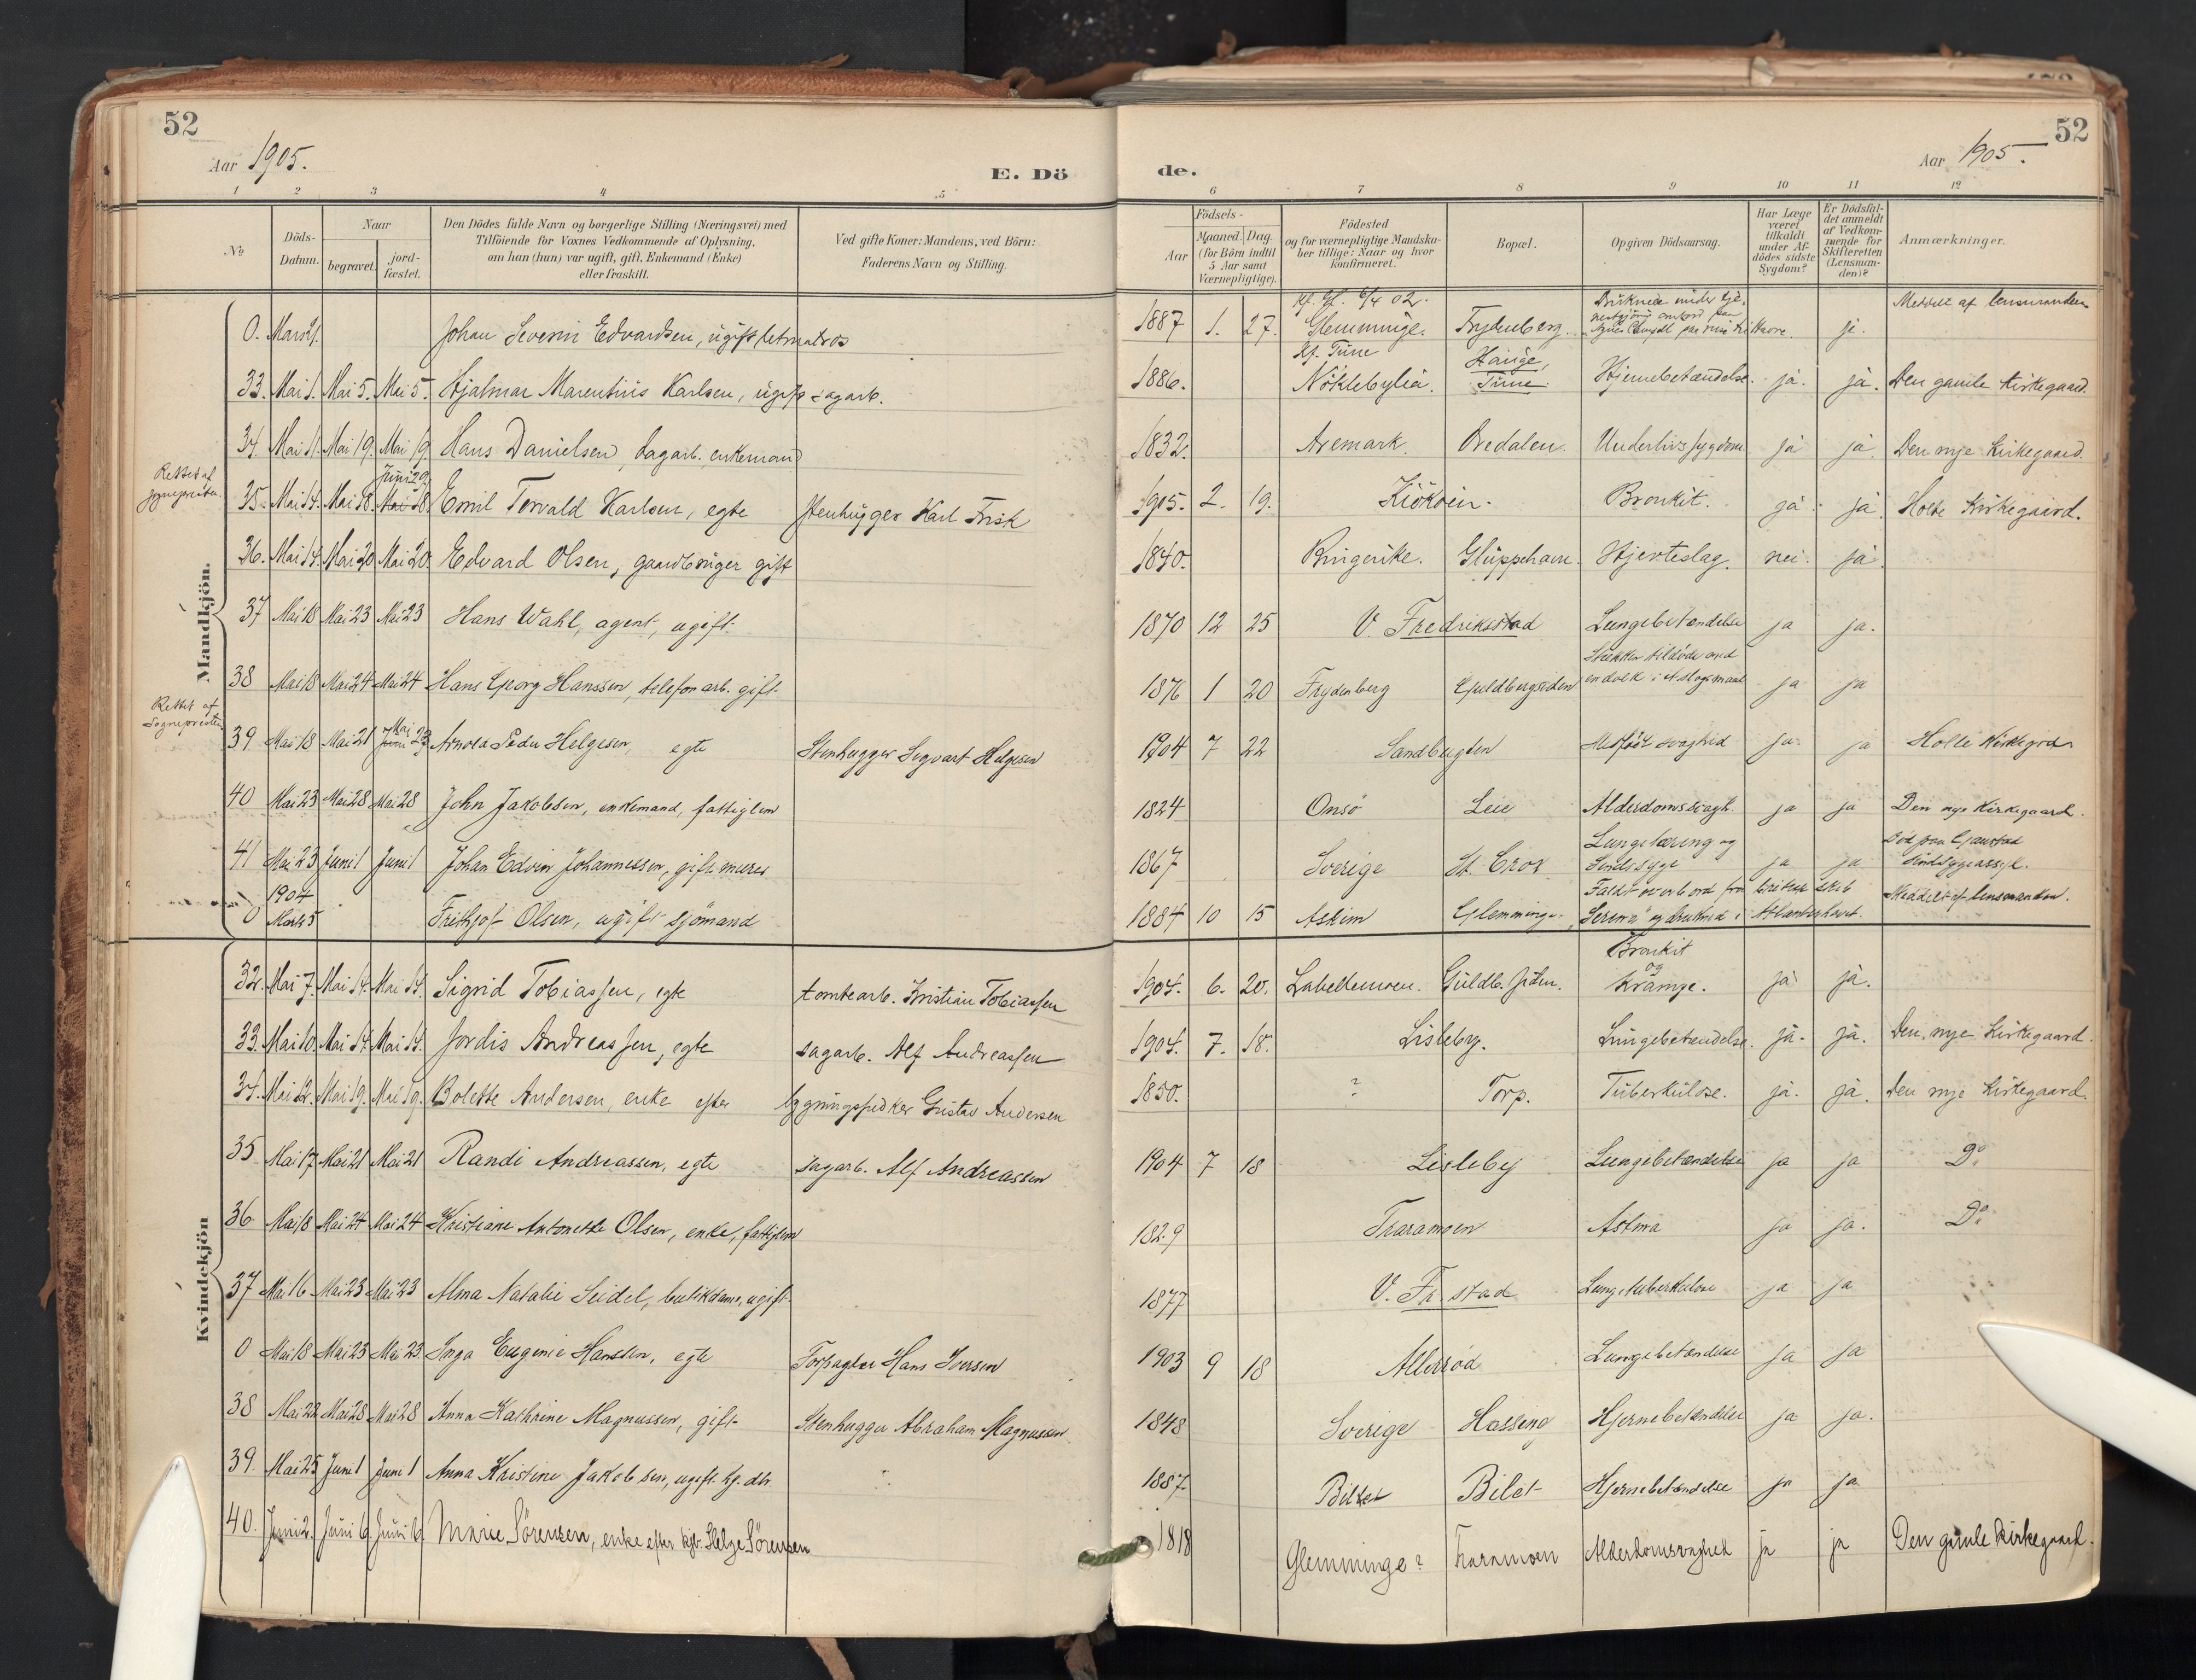 52
Aar 1905.
E. Dö
1 2 3 4 5
No
Döds-Datum.
Naar
begravet.
jord-fæstet.
Den Dödes fulde Navn og borgerlige Stilling (Næringsvei) med
Tilföiende for Voxnes Vedkommende af Oplysning,
om han (hun) var ugift, gift, Enkemand (Enke)
eller fraskilt.
Ved gifte Koner: Mandens, ved Börn:
Faderens Navn og Stilling.
Mandkjön.
0. Johan Severin Edvardsen, ugift letmatros
33. Mai 1. Mai 5. Mai 5. Hjalmar Marentius Karlsen, ugift sagarb.
34. Mai 11. Mai 19. Mai 19. Hans Danielsen, dagarb. enkemand
Rettet af sognepresten
Juni 29
35. Mai 14. Mai 18. Mai 18. Emil Torvald Karlsen, egte Stenhugger Karl Frisk
36. Mai 14. Mai 20 Mai 20. Edvard Olsen, gaardbruger gift
37 Mai 18 Mai 23 Mai 23 Hans Wahl, agent, ugift.
38 Mai 18 Mai 24 Mai 24 Hans Georg Hanssen, telefonarb. gift.
Rettet af Sognepresten
39 Mai 18 Mai 21 Mai 23 Peder Helgesen, egte Stenhugger Sigvart Helgesen
40 Mai 23 Mai 28 Mai 28 John Jakobsen, enkemand, fattiglem
41 Mai 23 Juni 1 Juni 1 Johan Edvin Johannessen, gift murer
1904
0 Marts 5 Frithjof Olsen, ugift sjömand
Kvindekjön
32. Mai 7. Mai 14. Mai 14. Sigrid Tobiassen, egte tomtearb. Kristian Tobiassen
33. Mai 10. Mai 14. Mai 14. Jordis Andreassen, egte sagarb. Alf Andreassen
34. Mai 12. Mai 19. Mai 19. Bolette Andersen, enke efter bygningssnedker Gustav Andersen
35 Mai 17 Mai 21 Mai 21 Randi Andreassen, egte sagarb. Alf Andreassen
36 Mai 18 Mai 24 Mai 24 Kristiane Antonette Olsen, enke, fattiglem
37 Mai 16 Mai 23 Mai 23 Alma Natalie Seidel, butikdame, ugift.
0 Mai 18 Mai 23 Mai 23. Inga Eugenie Hanssen, egte Forpagter Hans Iversen
38 Mai 22 Mai 28 Mai 28 Anna Kathrine Magnussen, gift Stenhugger Abraham Magnussen
39. Mai 25 Juni 1 Juni 1 Anna Kristine Jakobsen, ugift.
40. Juni 2. Juni 6. Juni 6. Marie Sörensen, enke efter Helge Sörensen
52
Aar 1905.
de.
6 7 8 9 10 11 12
Födsels-
Aar
Maaned. Dag.
(for Börn indtil
5 Aar samt
Værnepligtige).
Födested
og for værnepligtige Mandska-
ber tillige: Naar og hvor
konfirmeret.
Bopæl.
Opgiven Dödsaarsag.
Har Læge
været
tilkaldt
under Af-
dödes sidste
Sygdom?
Er Dödsfal-
det anmeldt
af Vedkom-
mende for
Skifteretten
(Lensman-
den)?
Anmærkninger.
Kf. Gl. 6/4 02.
1887 1. 27. Glemminge. Frydenberg. ja. Meddelt af lensmanden
Kf. Tune
1886. Nöklebylia. Hauge, Tune. Hjernebetændelse. ja. ja. Den gamle Kirkegaard.
1832. Aremark. Ordalen. Underlivssygdom ja ja. Den nye Kirkegaard.
1905. 2. 19. Kiököen. Bronkit. ja. ja. Holte Kirkegaard.
1840. Ringerike. Gluppehavn. Hjerteslag. nei. ja.
1870 12 25 V. Fredriksstad Lungebetændelse ja ja.
1876 1 20 Frydenberg Guldbergsiden Stukket tildöde med en dolk i et slagsmaal ja ja
1904 7 22 Sandbugten Medfödt svaghed ja. ja Holte Kirkegrd.
1824 Onsö Leie Alderdomssvagh. ja ja Den nye Kirkegaard.
1867 Sverige St. Croix Lungetæring og Sindssyge ja ja Död paa Gaustad Sindssygeasyl.
1884 10 15 Askim Glemminge. Faldt overbord fra britisk skib "Serena" og druknede i Atlanterhavet. Meddelt af lensmanden.
1904. 6. 20. Labeltemoen. Guldb.siden. Bronkit og Krampe. ja ja.
1904. 7. 18. Lisleby. Lungebetændelse. ja. ja. Den nye Kirkegaard.
1850. ? Torp. Tuberkulose. ja. ja. Den nye Kirkegaard.
1904 7 18 Lisleby Lungebetændelse ja ja Do.
1829 Traramoen Astma ja ja. Do.
1877 V. Fr.stad Lungetuberkulose ja ja
1903 9 18 Alleröd Lungebetændelse ja ja
1848 Sverige Hassing Hjernebetændelse ja ja.
1887. Bilet Bilet Hjernebetændelse ja ja
1818 Glemminge? Traramoen Alderdomsvaghed ja ja Den gamle Kirkegaard.